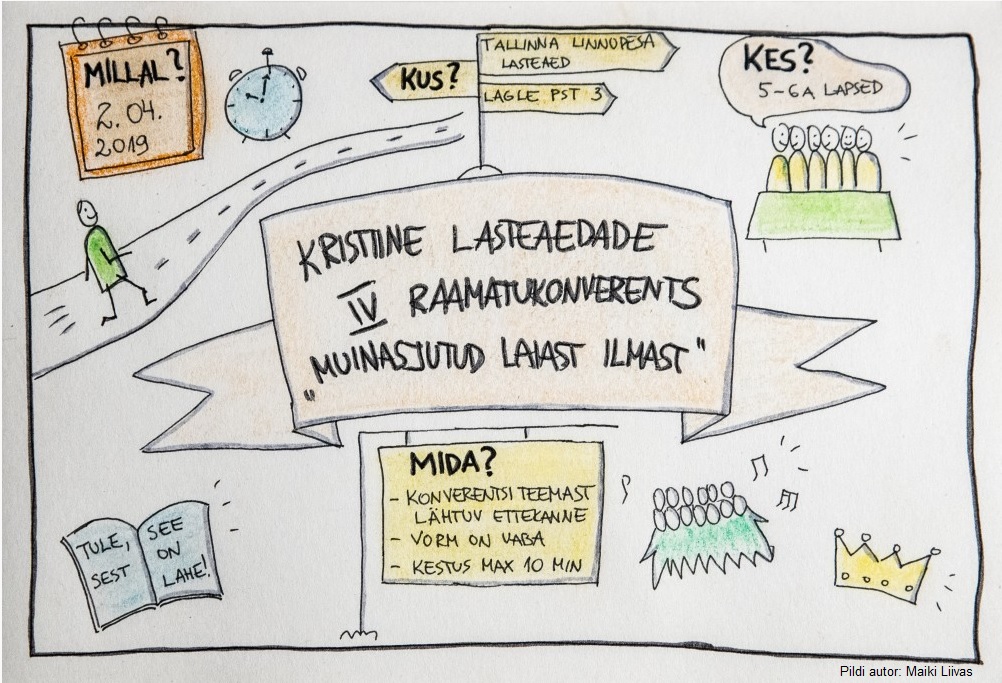 MILLAL?
2.04.
2019
KUS?
TALLINNA LINNUPESA
LASTEAED
LAGLE PST 3
KES?
5-6A LAPSED
KRISTIINE LASTEAEDADE
IV RAAMATUKONVERENTS
"MUINASJUTUD LAIAST ILMAST"
MIDA?
- KONVERENTSI TEEMAST
LÄHTUV ETTEKANNE
- VORM ON VABA
- KESTUS MAX 10 MIN
TULE,
SEST
SEE
ON
LAHE!
Pildi autor: Maiki Liivas